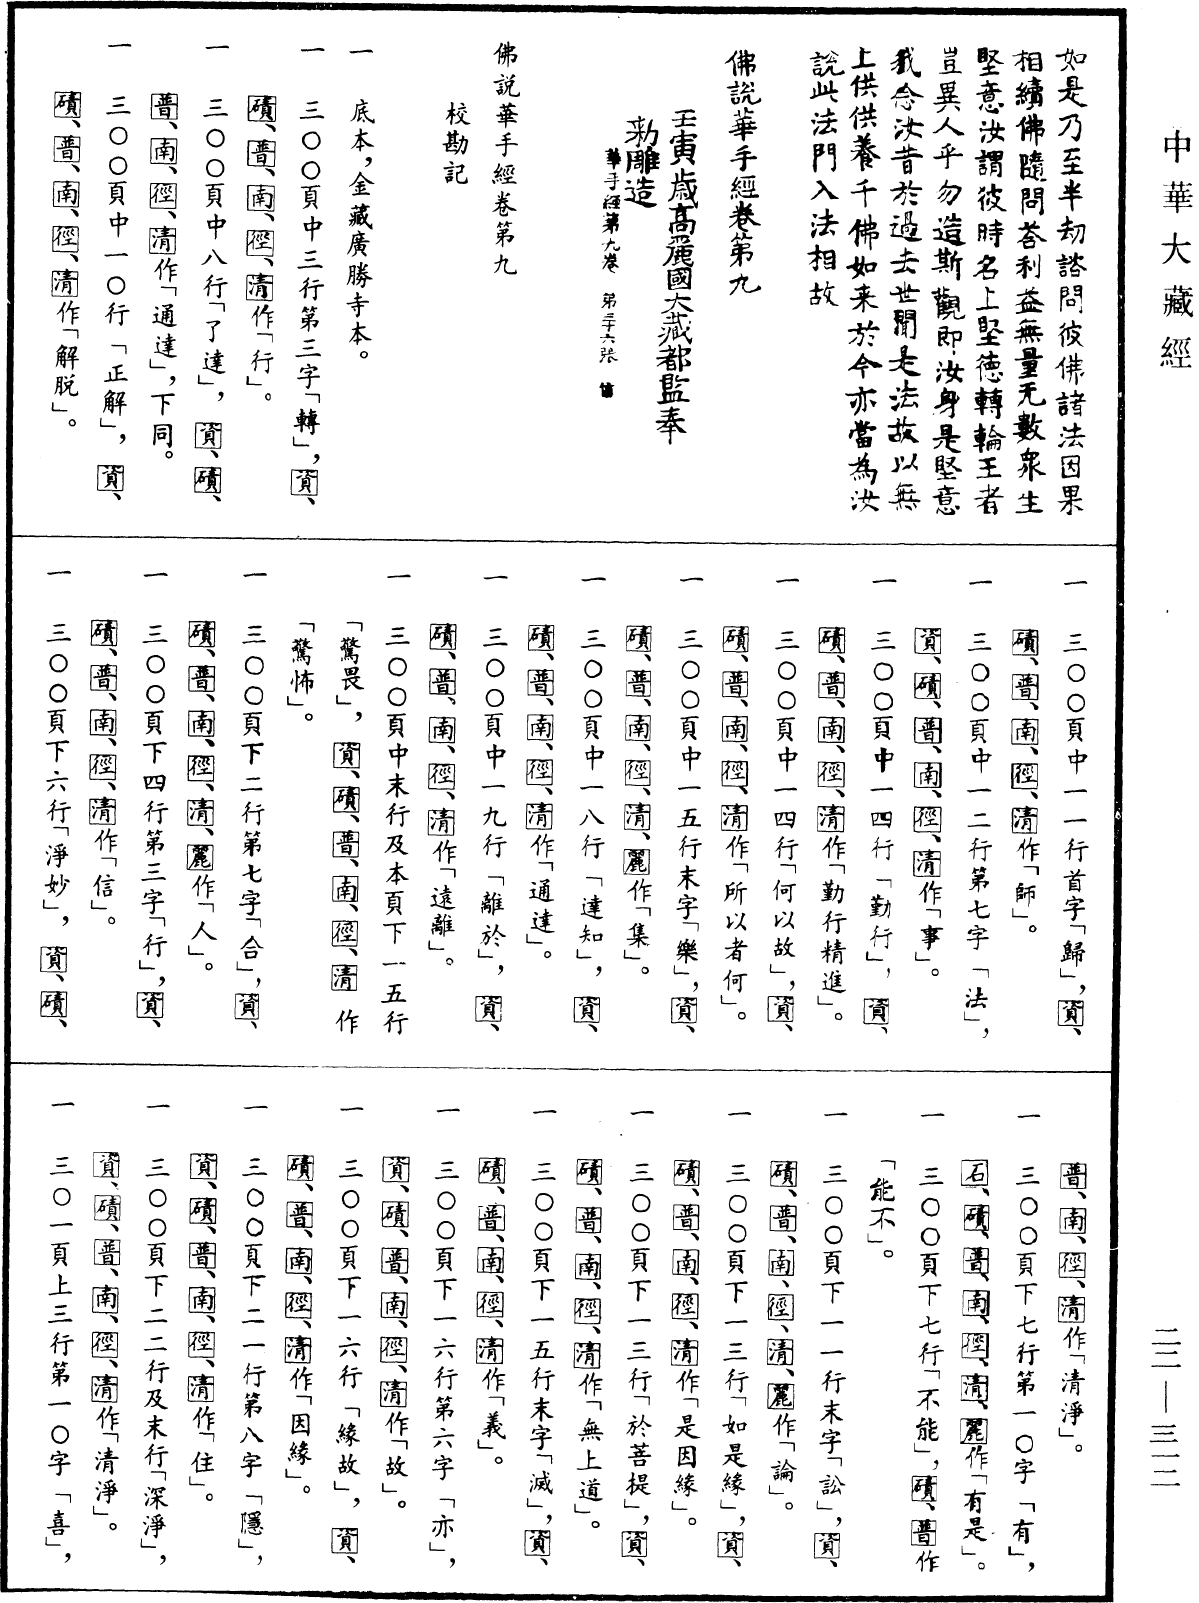 中華大藏經
如是乃至半劫諮問彼佛諸法因果
相續佛隨問荅利益無量无數衆生
堅意汝謂彼時名上堅德轉輪王者
豈異人乎勿造斯觀即汝身是堅意
我念汝昔於過去世聞是法故以無
上供供養千佛如来於今亦當為汝
說此法門入法相故
佛說華手經卷第九
壬寅歲高麗國大藏都監奉
勅雕造
華手經第九卷 第三十六張
佛説華手經卷第九
校勘記
一 底本,金藏廣勝寺本。
一 三〇〇頁中三行第三字「轉」,資、
磧、普、南、徑、清作「行」。
一 三〇〇頁中八行「了達」,資、磧、
普、南、徑、清作「通達」,下同。
一 三〇〇頁中一〇行「正解」,資、
磧、普、南、徑、清作「解脱」。
一 三〇〇頁中一一行首字「歸」,資、
磧、普、南、徑、清作「師」。
一 三〇〇頁中一二行第七字「法」,
資、磧、普、南、徑、清作「事」。
一 三〇〇頁中一四行「勤行」,資、
磧、普、南、徑、清作「勤行精進」。
一 三〇〇頁中一四行「何以故」,資、
磧、普、南、徑、清作「所以者何」。
一 三〇〇頁中一五行末字「樂」,資、
磧、普、南、徑、清、麗作「集」。
一 三〇〇頁中一八行「達知」,資、
磧、普、南、徑、清作「通達」。
一 三〇〇頁中一九行「離於」,資、
磧、普、南、徑、清作「遠離」。
一 三〇〇頁中末行及本頁下一五行
「驚畏」,資、磧、普、南、徑、清作
「驚怖」。
一 三〇〇頁下二行第七字「合」,資、
磧、普、南、徑、清、麗作「人」。
一 三〇〇頁下四行第三字「行」,資、
磧、普、南、徑、清作「信」。
一 三〇〇頁下六行「淨妙」,資、磧、
普、南、徑、清作「清淨」。
一 三〇〇頁下七行第一〇字「有」,
石、磧、普、南、徑、清、麗作「有是」。
一 三〇〇頁下七行「不能」,磧、普作
「能不」。
一 三〇〇頁下一一行末字「訟」,資、
磧、普、南、徑、清、麗作「論」。
一 三〇〇頁下一三行「如是緣」,資、
磧、普、南、徑、清作「是因緣」。
一 三〇〇頁下一三行「於菩提」,資、
磧、普、南、徑、清作「無上道」。
一 三〇〇頁下一五行末字「滅」,資、
磧、普、南、徑、清作「義」。
一 三〇〇頁下一六行第六字「亦」,
資、磧、普、南、徑、清作「故」。
一 三〇〇頁下一六行「緣故」,資、
磧、普、南、徑、清作「因緣」。
一 三〇〇頁下二一行第八字「隱」,
資、磧、普、南、徑、清作「住」。
一 三〇〇頁下二二行及末行「深淨」,
資、磧、普、南、徑、清作「清淨」。
一 三〇一頁上三行第一〇字「喜」,
二二—三一二